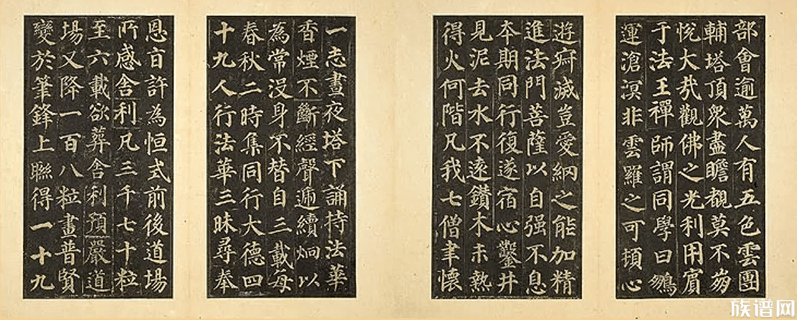 部會逾萬人有五色雲團
輔塔頂衆盡瞻覩莫不崩
悅大哉觀佛之光利用賓
于法王禪師謂同學曰鵬
運滄溟非雲羅之可頓心
遊寂滅豈愛網之能加精
進法門菩薩以自强不息
本期同行復遂宿心鑿井
見泥去水不遠鑽木未熱
得火何階凡我七僧聿懷
一志晝夜塔下誦持法華
香煙不斷經聲遞續炯以
為常沒身不替自三載每
春秋二時集同行大德四
十九人行法華三昧尋奉
恩旨許為恒式前後道場
所感舍利凡三千七十粒
至六載欲葬舍利預嚴道
場又降一百八粒畫普賢
變於筆鋒上聯得一十九
族谱网